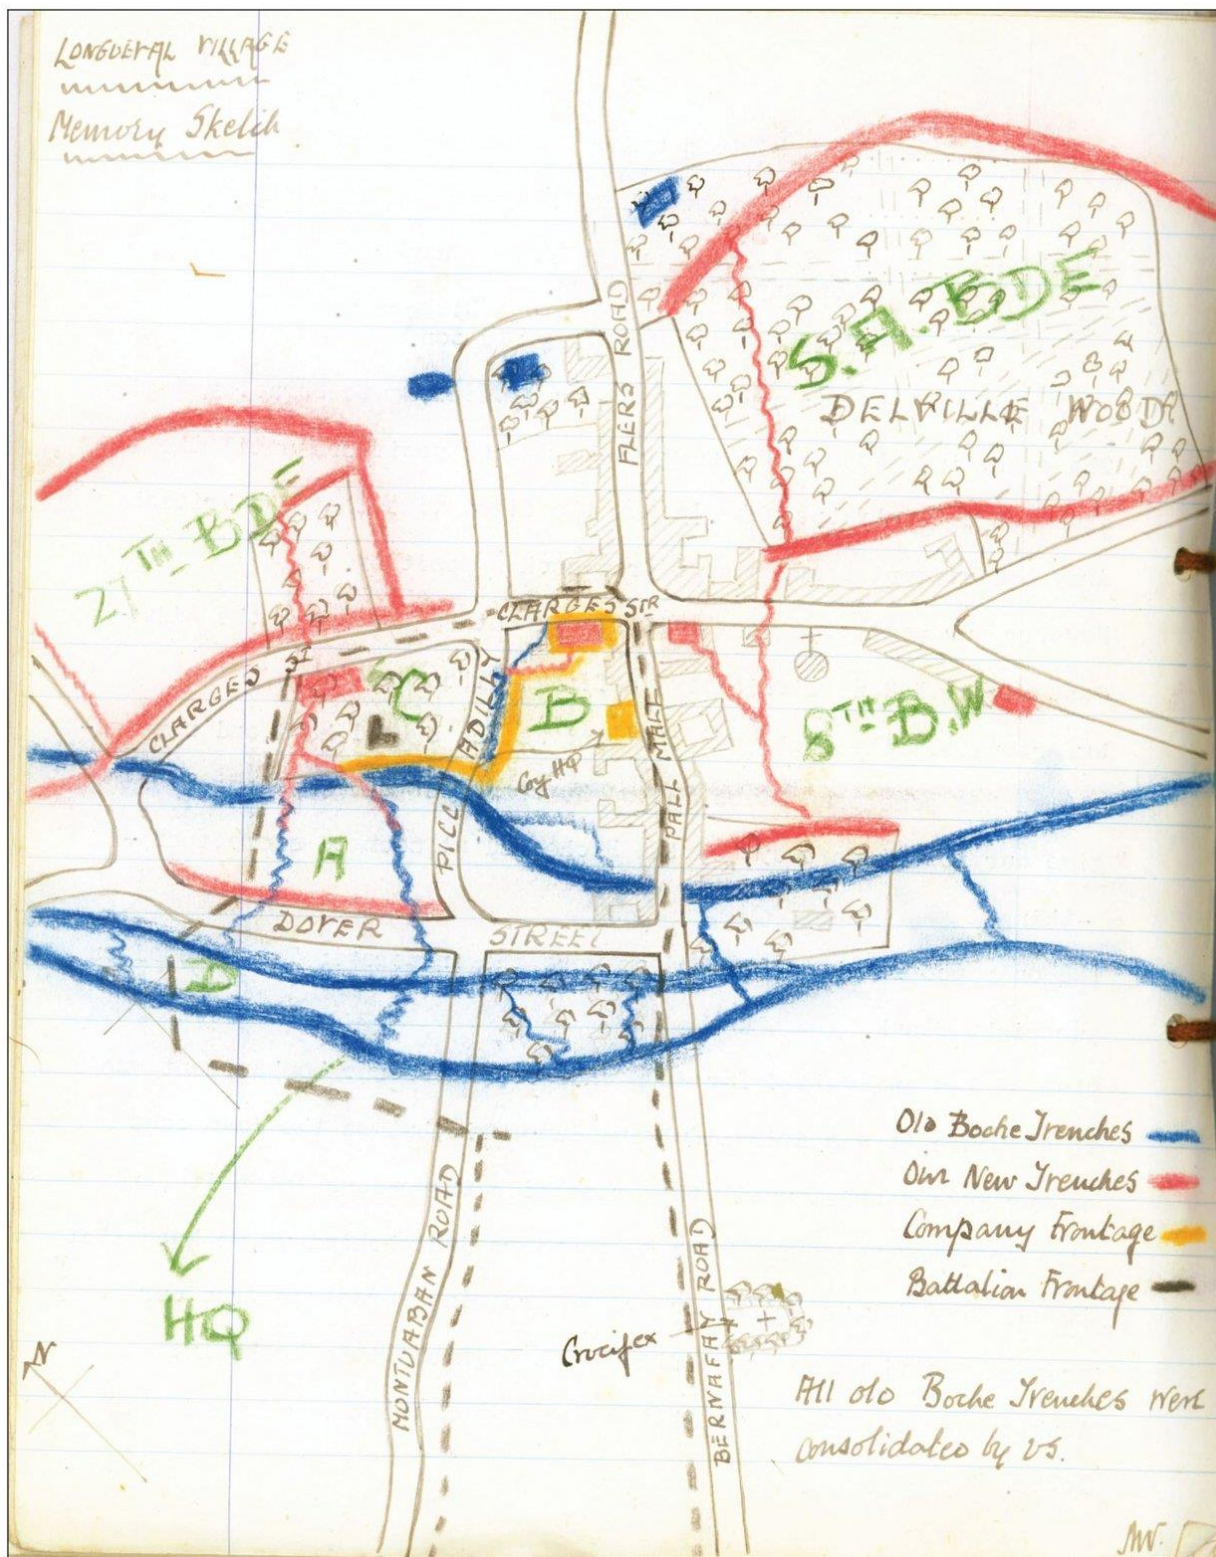 LONGUEVAL VILLAGE
Memory Sketch
S.A. BDE
DELVILLE WOOD
FLERS ROAD
27TH BDE
CLARGES STR
CLARGES ST
C
B
8TH B.W
PICCADILLY
Coy HQ
PALL MALL
A
DOVER STREET
D
HQ
N
MONTUABAN ROAD
BERNAFAY ROAD
Crucifex
Old Boche Trenches
Our New Trenches
Company Frontage
Battalion Frontage
All old Boche Trenches were
consolidated by us.